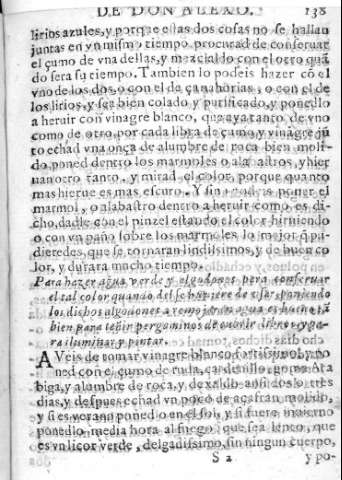 DE DON ALEXO. 138
lirios azules, y porque estas dos cosas no se hallan
juntas en vn mismo tiempo procurad de conseruar
el çumo de vna dellas, y mezclaldo con el otro quã
do sera su tiempo. Tambien lo podeis hazer cõ el
vno de los dos, o con el de çanahorias, o con el de
los lirios, y sea bien colado y purificado, y poneldo
a heruir con vinagre blanco, que aya tanto de vno
como de otro, por cada libra de çumo y vinagre jũ
to echad vna onça de alumbre de roca bien moli-
do, poned dentro los marmoles o alabastros, y hier
uan otro tanto, y mirad el color, porque quanto
mas hierue es mas escuro. Y sin poner el
marmol, o alabastro dentro a heruir como es di-
cho, dadle con el pinzel estando el color hiruiendo
o con vn paño sobre los marmoles lo mejor q̃ pu
dieredes, que se tornaran lindissimos, y de buen co
lor, y durara mucho tiempo.
Para hazer agua verde y algodones para conseruar
el tal color quando del se huuiere de vsar, poniendo
los dichos algodones a remojar en agua es bueno tã
bien para teñir pergaminos de cubrir libros, y pa-
ra iluminar y pintar.
AVeis de tomar vinagre blanco fortissimo, y po
ned con el çumo de ruda, cardenillo, goma Ara
biga, y alumbre de roca, y dexaldo assi dos o tres
dias, y despues echad vn poco de açafran molido,
y si es verano poned o en el sol, y si fuere inuierno
poneldo media hora al fuego que sea lento, que
es vn licor verde, delgadissimo, sin ningun cuerpo,
S 2 y po-